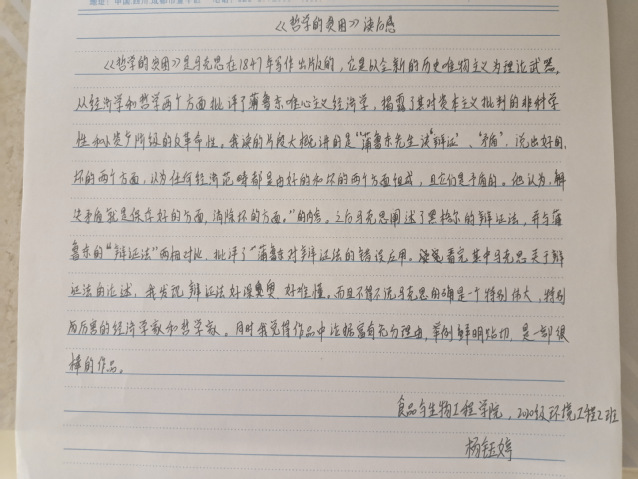 《哲学的贫困》读后感
《哲学的贫困》是马克思在1847年写作出版的,它是以全新的历史唯物主义为理论武器,
从经济学和哲学两个方面批评了蒲鲁东唯心主义经济学,揭露了其对资本主义批判的非科学
性和小资产阶级的反革命性。我读的片段大概讲的是"蒲鲁东先生谈'辩证'、'矛盾',说出好的、
坏的两个方面,认为任何经济范畴都是由好的和坏的两个方面组成,且它们是矛盾的。他认为,解
决矛盾就是保存好的方面,消除坏的方面。"的内容。之后马克思阐述了黑格尔的辩证法,并与蒲
鲁东的"辩证法"两相对比,批评了"蒲鲁东对辩证法的错误应用。看完其中马克思关于辩
证法的论述,我发现辩证法好深奥 好难懂。而且不得不说马克思的确是一个特别伟大,特别
厉害的经济学家和哲学家。同时我觉得作品中论据富有充分理由,举例鲜明贴切,是一部很
棒的作品。
食品与生物工程学院,2020级环境工程2班
杨钰婷